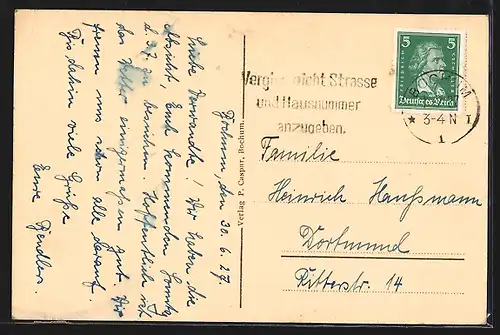 Bochum, den 30.6.27.
Liebe Verwandte! Wir haben die
Absicht, Euch kommenden Sonntag
d. 3.7. zu besuchen. Hoffentlich ist
das Wetter einigermaßen gut. Wir
freuen uns schon alle darauf.
Bis dahin viele Grüße
Eure
Verlag P. Caspar, Bochum.
Vergiß nicht Strasse
und Hausnummer
anzugeben.
5 5
Deutsches Reich
BOCHUM
* 3-4 N 1
1
Familie
Heinrich Hanssmann
Dortmund
Ritterstr. 14